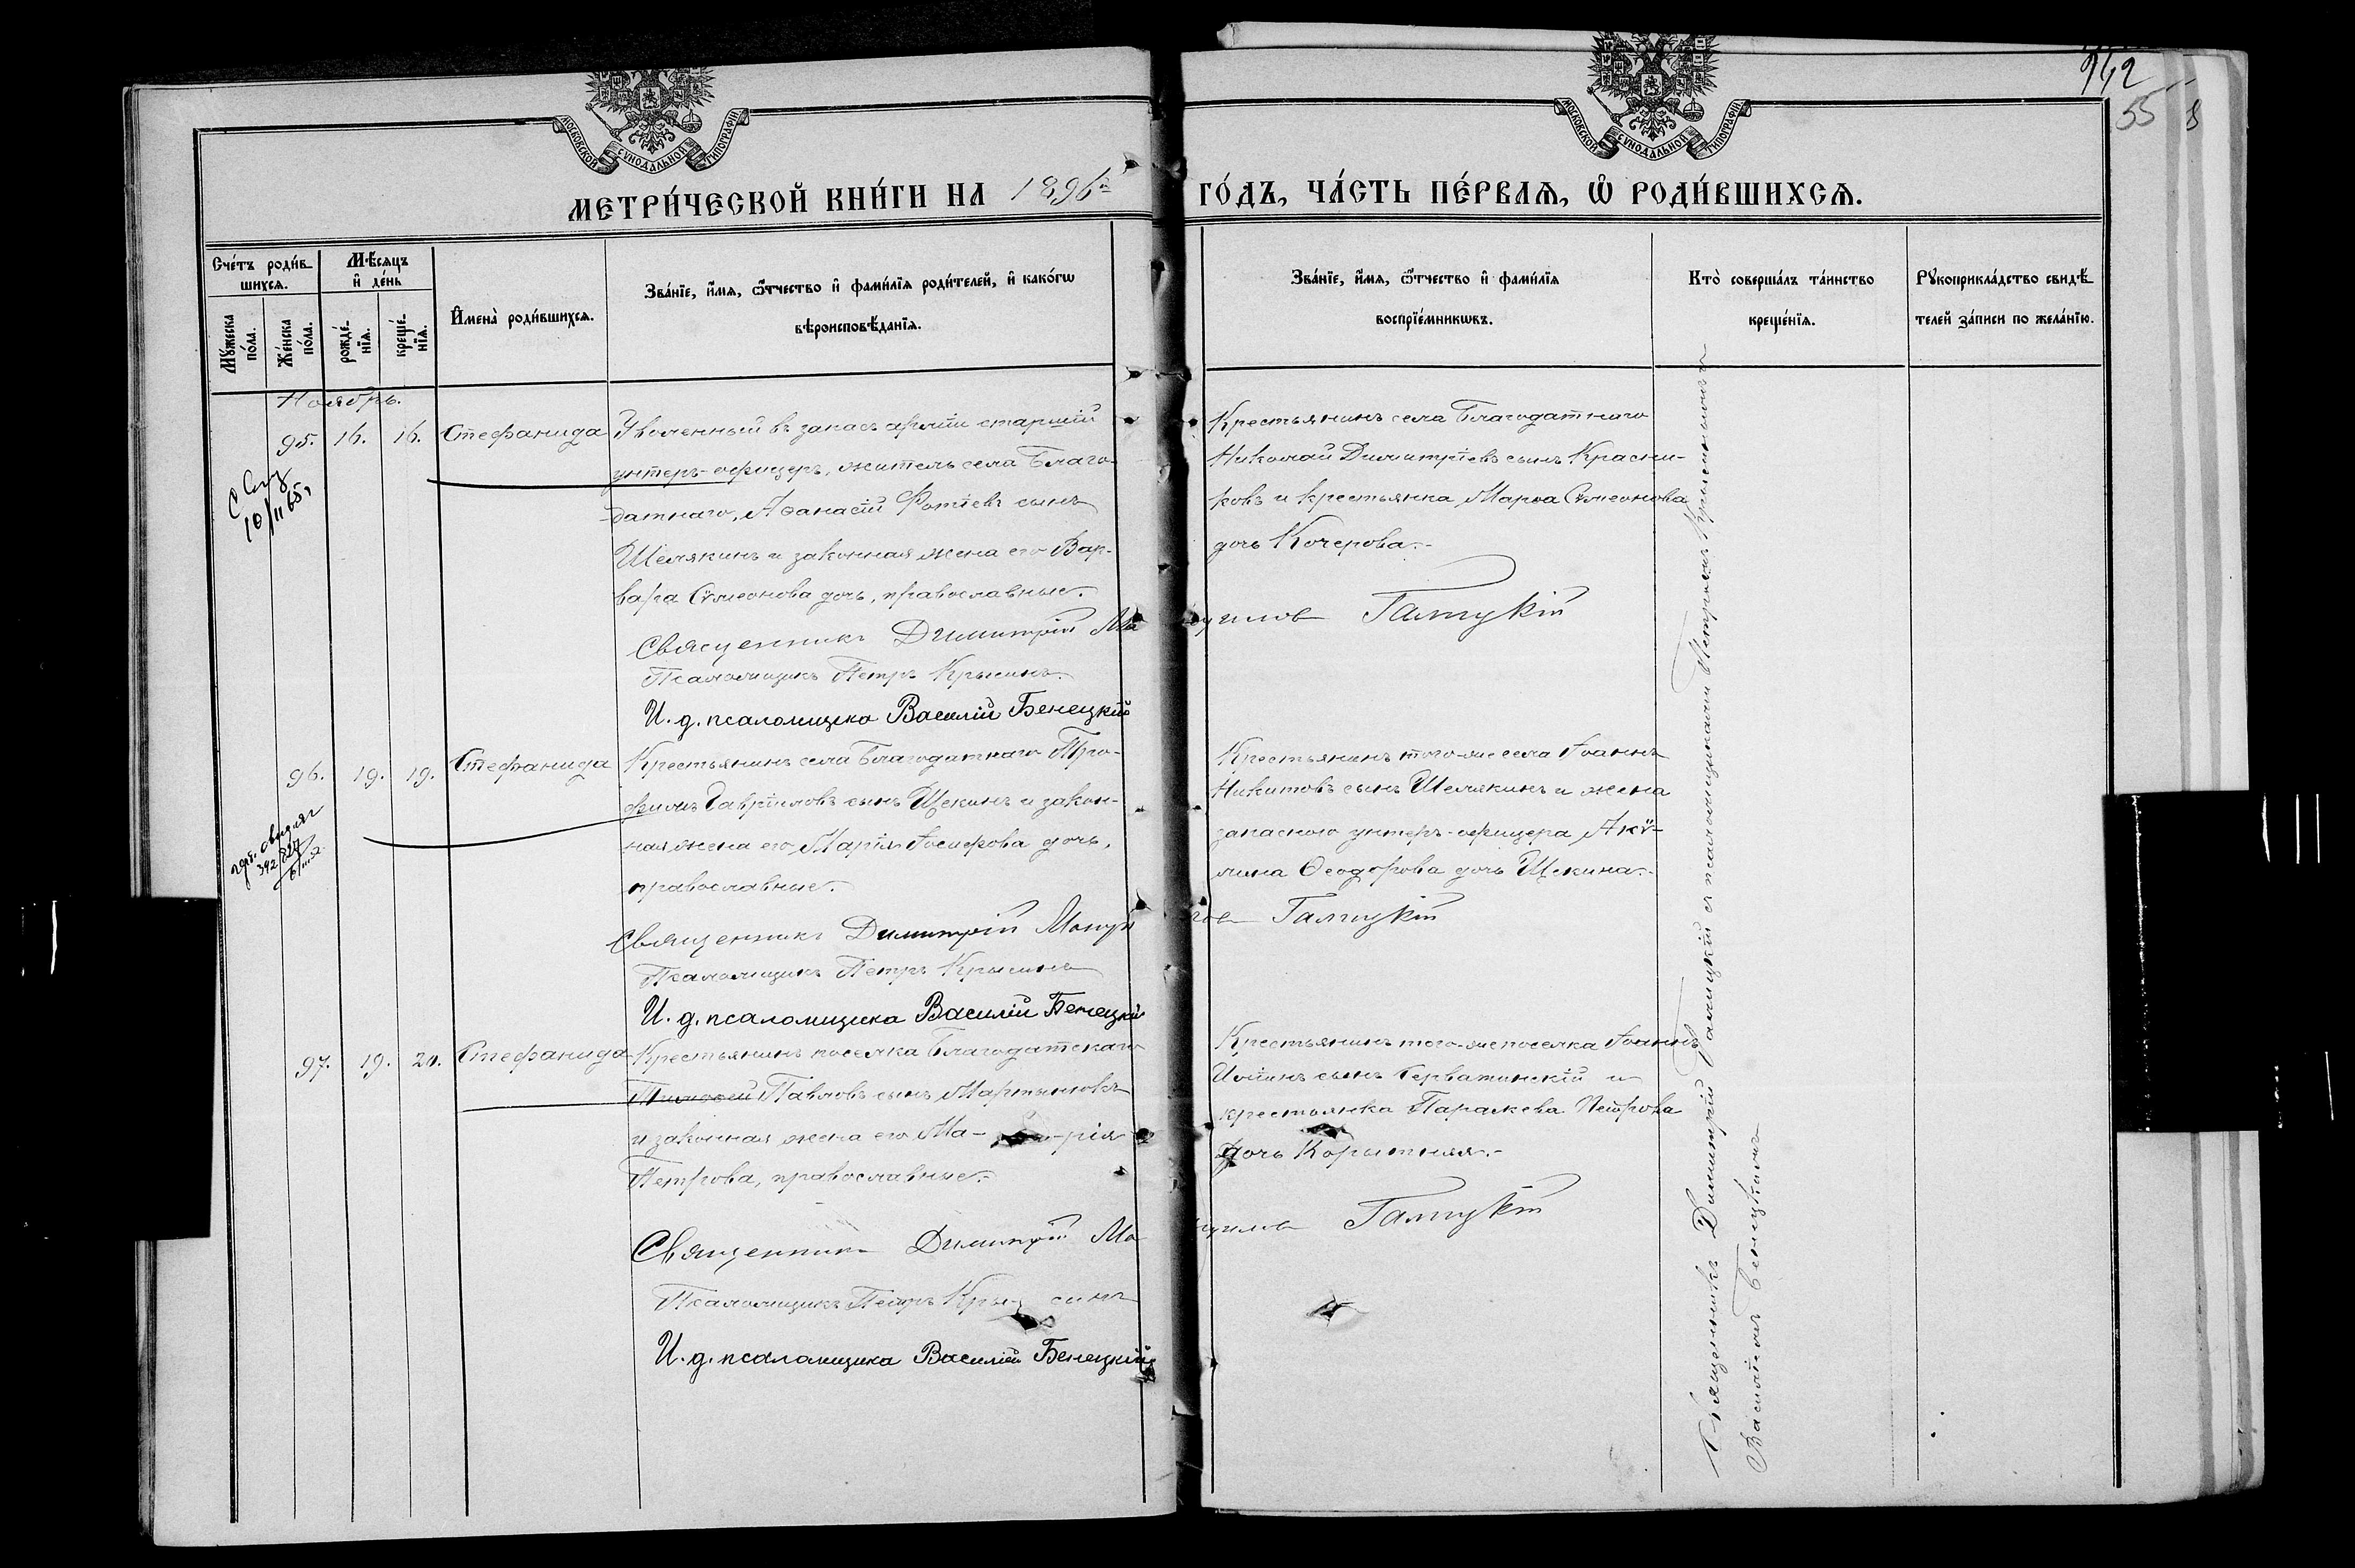 942
55
8
МОСКОВСКОЙ СѴНОДАЛЬНОЙ ТИПОГРАФІИ
МОСКОВСКОЙ СѴНОДАЛЬНОЙ ТИПОГРАФІИ
МЕТРИ́ЧЕСКОЙ КНИ́ГИ НА 1896й
ГО́ДЪ, ЧА́СТЬ ПЕ́РВАѦ, Ѿ РОДИ́ВШИХСѦ.
Сче́тъ роди́в-
шихсѧ.
Мꙋ́жеска по́ла.
Же́нска по́ла.
Мѣ́сѧцъ
и҆ де́нь
рожде́-
нїѧ.
креще́-
нїѧ.
И҆мена̀ роди́вшихсѧ.
Зва́нїе, и҆́мѧ, ѻ҆́тчество и҆ фами́лїѧ роди́телей, и҆ како́гѡ
вѣроисповѣ́данїѧ.
Зва́нїе, и҆́мѧ, ѻ҆́тчество и҆ фами́лїѧ
воспрїе́мникѡвъ.
Кто̀ соверша́лъ та́инство
креще́нїѧ.
Рꙋкоприкла́дство свидѣ́-
телей за́писи по жела́нїю.
Ноябрь.
95. 16. 16. Стефанида
Уволенный въ запасъ арміи старшій
унтеръ-офицеръ, житель села Благо-
датнаго, Аѳанасій Фотіевъ сынъ
Шелякинъ и законная жена его Вар-
вара Сѵмеонова дочь, православные.
Священникъ Димитрій Ма
Псаломщикъ Петръ Крысинъ
И. д. псаломщика Василій Бенецкій
Крестьянинъ села Благодатнаго
Николай Димитріевъ сынъ Красни-
ковъ и крестьянка Марѳа Сѵмеонова
дочь Кочерова.
Галицкій
10/II 65
96. 19. 19. Стефанида
Крестьянинъ села Благодатнаго Тро-
фимъ Гавріиловъ сынъ Щекинъ и закон-
ная жена его Марія Іосифова дочь,
православные.
Священникъ Димитрій
Псаломщикъ Петръ Крысинъ
И. д. псаломщика Василій Бенецкій
Крестьянинъ того-же села Іоаннъ
Никитовъ сынъ Шелякинъ и жена
запаснаго унтеръ-офицера Акѵ-
лина Ѳеодорова дочь Щекина.
Галицкій
97. 19. 20. Стефанида
Крестьянинъ поселка Благодатскаго
Тимоѳей Павловъ сынъ Мартыновъ
и законная жена его Ма-рія
Петрова, православные.
Священникъ Димитрій Ма
Псаломщикъ Петръ Кры-синъ
И. д. псаломщика Василій Бенецкій
Крестьянинъ того-же поселка Іоаннъ
сынъ Герватинскій и
крестьянка Параскева Петрова
дочь Корытняя.
Галицкій
Священникъ Димитрій Галицкій съ псаломщиками Петромъ Крысинымъ и
Василіемъ Бенецкимъ